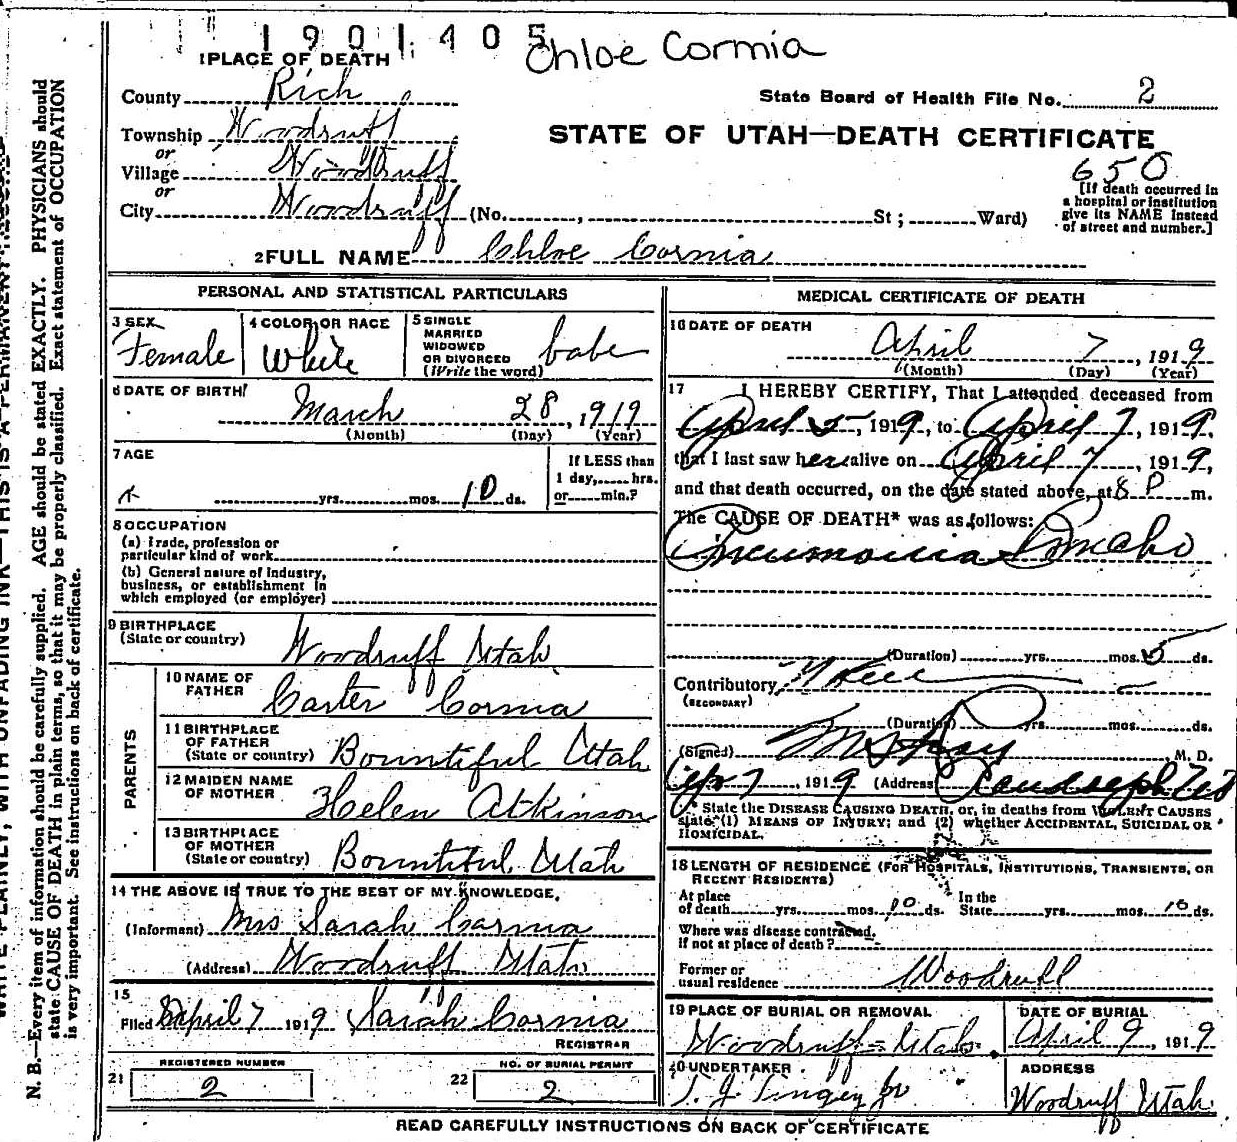 1901405
Chloe Cormia
1 PLACE OF DEATH
County Rich
State Board of Health File No. 2
Township Woodruff
or
STATE OF UTAH—DEATH CERTIFICATE
Village Woodruff
or
650
City Woodruff (No. , St ; Ward)
[If death occurred in
a hospital or institution
give its NAME instead
of street and number.]
2 FULL NAME Chloe Cornia
PERSONAL AND STATISTICAL PARTICULARS
3 SEX
Female
4 COLOR OR RACE
White
5 SINGLE
MARRIED
WIDOWED
OR DIVORCED
(Write the word)
babe
6 DATE OF BIRTH
March 28, 1919
(Month) (Day) (Year)
7 AGE
yrs. mos. 10 ds.
If LESS than
1 day, hrs.
or min.?
8 OCCUPATION
(a) Trade, profession or
particular kind of work
(b) General nature of industry,
business, or establishment in
which employed (or employer)
9 BIRTHPLACE
(State or country) Woodruff Utah
PARENTS
10 NAME OF
FATHER Carter Cornia
11 BIRTHPLACE
OF FATHER
(State or country) Bountiful Utah
12 MAIDEN NAME
OF MOTHER Helen Atkinson
13 BIRTHPLACE
OF MOTHER
(State or country) Bountiful Utah
14 THE ABOVE IS TRUE TO THE BEST OF MY KNOWLEDGE.
(Informant) Mrs Sarah Cornia
(Address) Woodruff Utah
15
Filed April 7 1919 Sarah Cornia
REGISTRAR
REGISTERED NUMBER
21 2
NO. OF BURIAL PERMIT
22 2
MEDICAL CERTIFICATE OF DEATH
16 DATE OF DEATH
April 7, 1919
(Month) (Day) (Year)
17 I HEREBY CERTIFY, That I attended deceased from
April 5, 1919, to April 7, 1919,
that I last saw her alive on April 7, 1919,
and that death occurred, on the date stated above, at 8 P m.
The CAUSE OF DEATH* was as follows:
Pneumonia
(Duration) yrs. mos. 5 ds.
Contributory
(SECONDARY)
(Duration) yrs. mos. ds.
(Signed) M. D.
7, 1919 (Address) Randolph
* State the DISEASE CAUSING DEATH, or, in deaths from VIOLENT CAUSES
state (1) MEANS OF INJURY; and (2) whether ACCIDENTAL, SUICIDAL OR
HOMICIDAL.
18 LENGTH OF RESIDENCE (FOR HOSPITALS, INSTITUTIONS, TRANSIENTS, OR
RECENT RESIDENTS)
At place
of death yrs. mos. 10 ds.
In the
State yrs. mos. 10 ds.
Where was disease contracted,
if not at place of death?
Former or
usual residence Woodruff
19 PLACE OF BURIAL OR REMOVAL
Woodruff - Utah
DATE OF BURIAL
April 9, 1919
20 UNDERTAKER
T. J. Tingey Jr
ADDRESS
Woodruff Utah
READ CAREFULLY INSTRUCTIONS ON BACK OF CERTIFICATE
N. B.—Every item of information should be carefully supplied. AGE should be stated EXACTLY. PHYSICIANS should
state CAUSE OF DEATH in plain terms, so that it may be properly classified. Exact statement of OCCUPATION
is very important. See instructions on back of certificate.